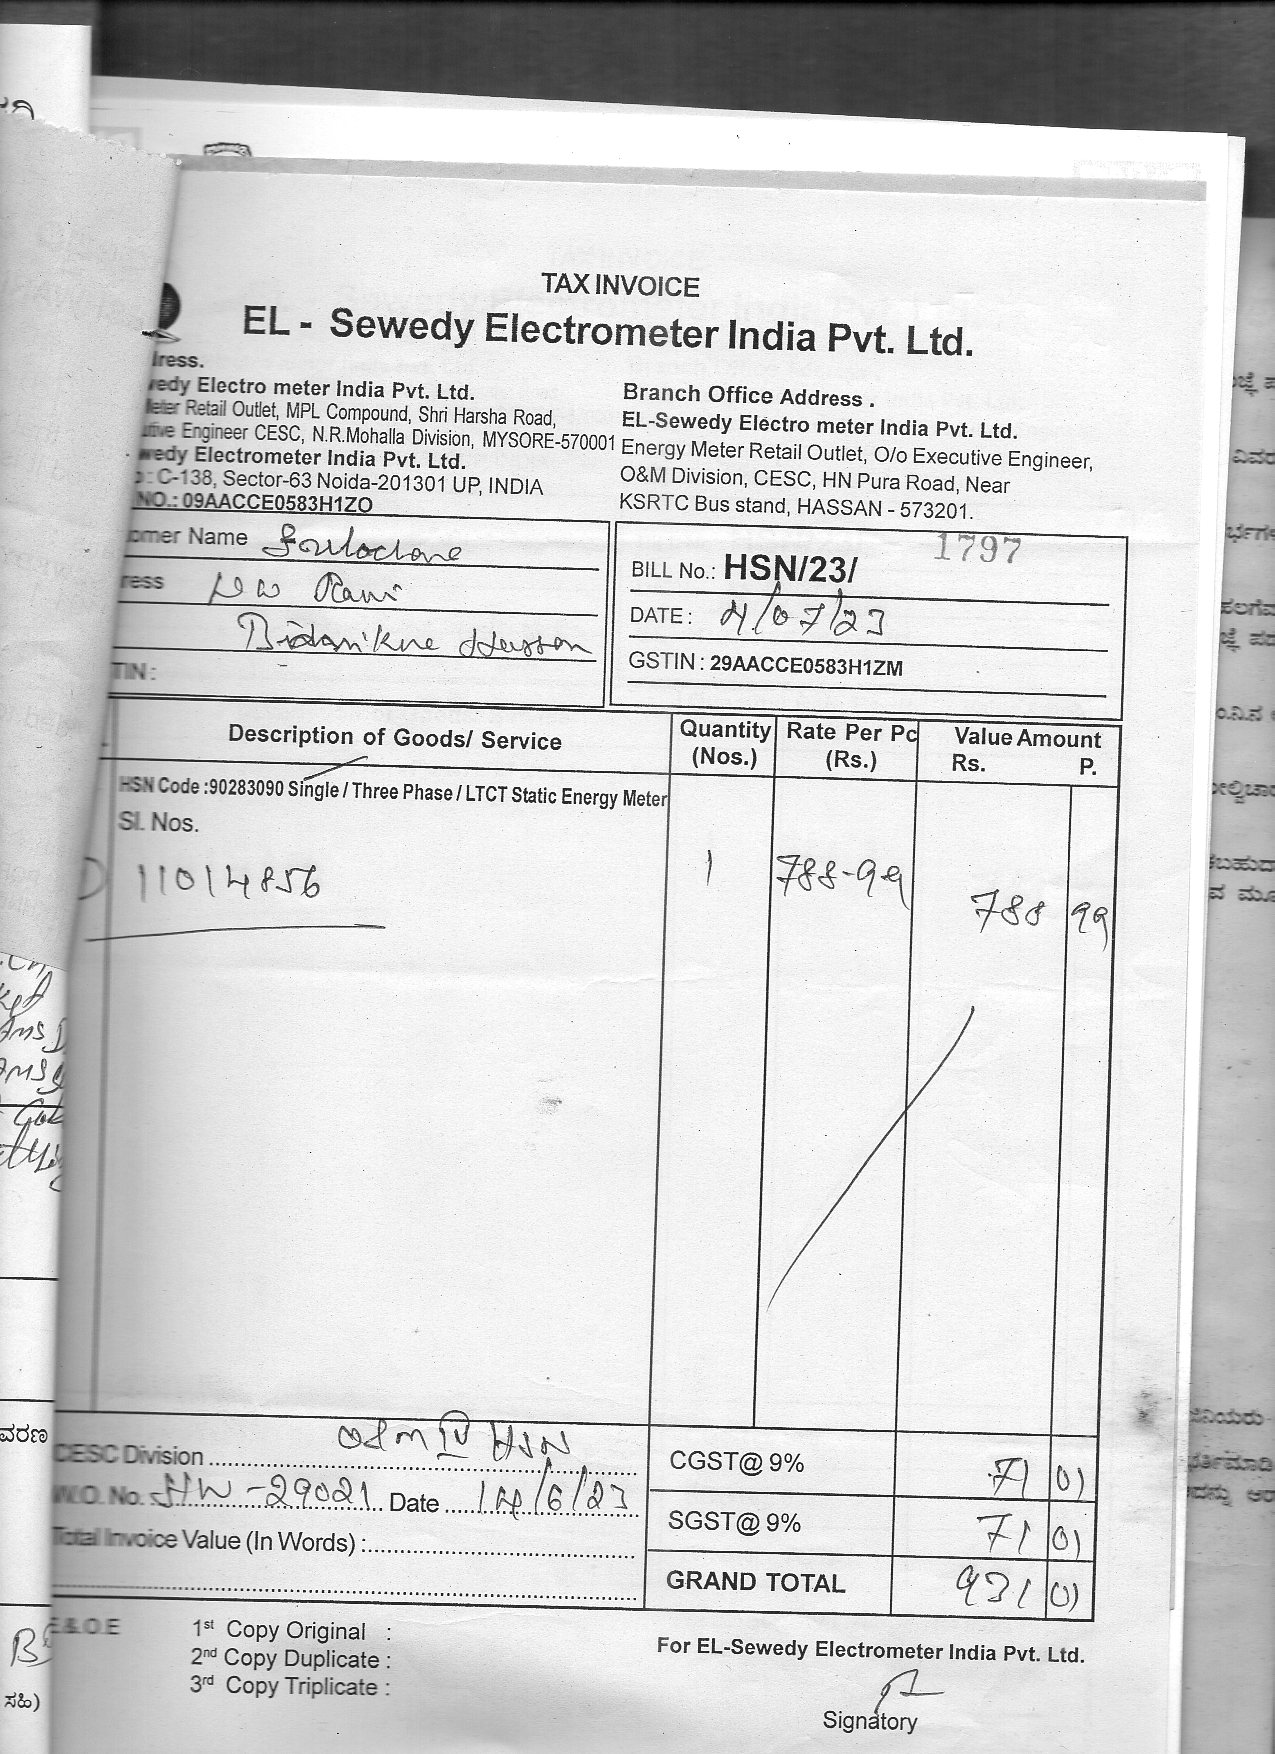 TAX INVOICE
EL - Sewedy Electrometer India Pvt. Ltd.
Electro meter India Pvt. Ltd.
Retail Outlet, MPL Compound, Shri Harsha Road,
Engineer CESC, N.R.Mohalla Division, MYSORE-570001
Electrometer India Pvt. Ltd.
C-138, Sector-63 Noida-201301 UP, INDIA
NO.: 09AACCE0583H1ZO
Branch Office Address .
EL-Sewedy Electro meter India Pvt. Ltd.
Energy Meter Retail Outlet, O/o Executive Engineer,
O&M Division, CESC, HN Pura Road, Near
KSRTC Bus stand, HASSAN - 573201.
Name
Ravi
TIN :
1797
BILL No.: HSN/23/
DATE : 4/07/23
GSTIN : 29AACCE0583H1ZM
Description of Goods/ Service
Quantity (Nos.)
Rate Per Pc (Rs.)
Value Amount
Rs. P.
HSN Code :90283090 Single / Three Phase / LTCT Static Energy Meter
Sl. Nos.
11014856 1 788-99 788 99
CESC Division HSN
W.O. No. HW-29021 Date 14/6/23
Total Invoice Value (In Words) :
CGST@ 9% 71 01
SGST@ 9% 71 01
GRAND TOTAL 931 01
E.&.O.E
1st Copy Original :
2nd Copy Duplicate :
3rd Copy Triplicate :
For EL-Sewedy Electrometer India Pvt. Ltd.
Signatory
ವರಣ
ಸಹಿ)